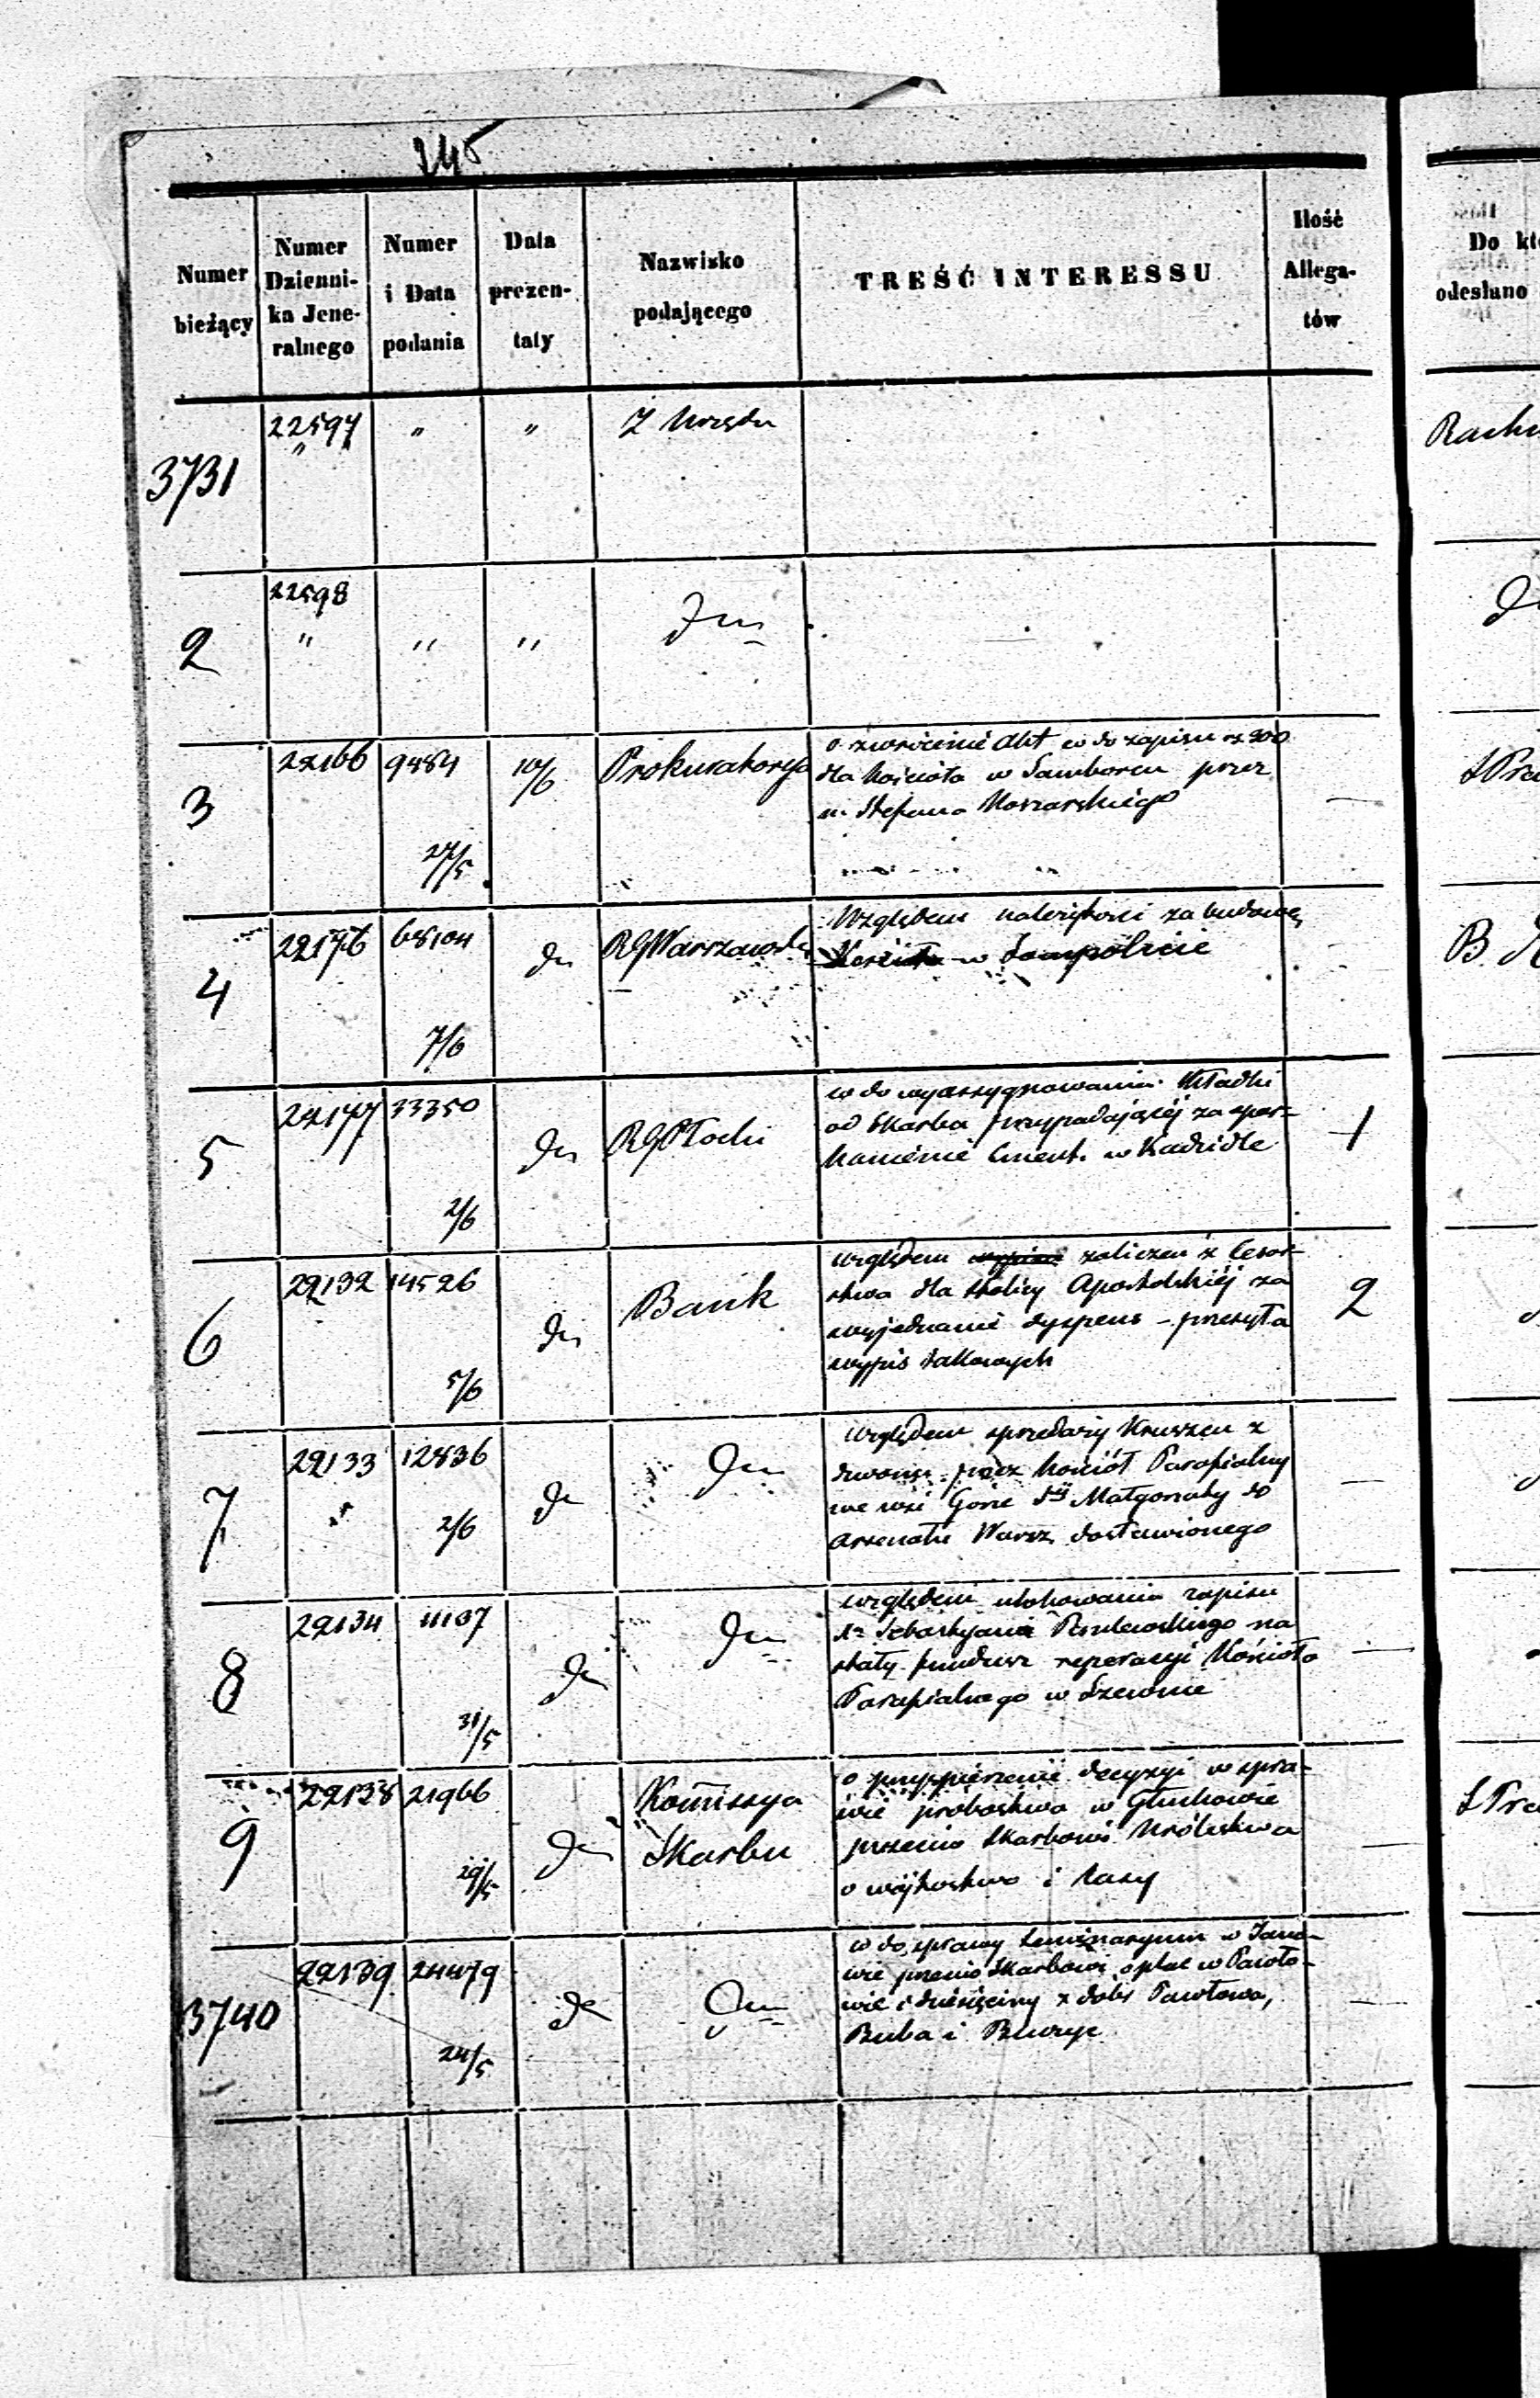 245
Numer bieżący
Numer Dzienni-ka Jene-ralnego
Numer i Data podania
Data prezen-taty
Nazwisko podającego
TREŚĆ INTERESSU
Ilość Allega-tów
Do kt
odesłano
3731 22597 " " " Z Urzędu
Rachu
2 22598 " " " Dn
3 22166 9484 27/5 10/6 Prokuratorya
o zwrócenie Akt w do zapisu rs 300
dla Kościoła w Samborcu przez
n. Stefana
4 22176 68104 7/6 Dn RGWarszawski
Względem należytości za budowę
Kościoła w Sompolnie
B.
5 22177 33350 2/6 Dn RGPłocki
w do wyassygnowania Składki
od Skarbu przypadającéj za spar-
kanienie Cment. w Kadzidle
1
6 22132 14526 5/6 Dn Bank
względem zaliczeń z Cesar-
stwa dla Stolicy Apostolskiéj za
wyjednanie dyspens - przesyła
wypis takowych
2
7 22133 12836 2/6 Dn Dn
względem sprzedaży Kruszcu z
dzwonu przez Kościół Parafialny
we wsi Górze Stéj Małgorzaty do
Arsenału Warsz. dostawionego
8 22134 11137 31/5 Dn Dn
względem ulokowania zapisu
Sebastyana na
stały fundusz reperacyi Kościoła
Parafialnego w
9 22138 21966 29/5 Dn Kommissya
Skarbu
o przyspieszenie decyzyi w spra-
wie probostwa w Głuchowie
przeciw Skarbowi Królestwa
o wójtostwo i lasy
3740 22139 24479 24/5 Dn Dn
w do sprawy Seminaryum w Jano-
wie przeciw Skarbowi o plac w Pawło-
wie i dziesięciny z dóbr Pawłowa,
Buba i